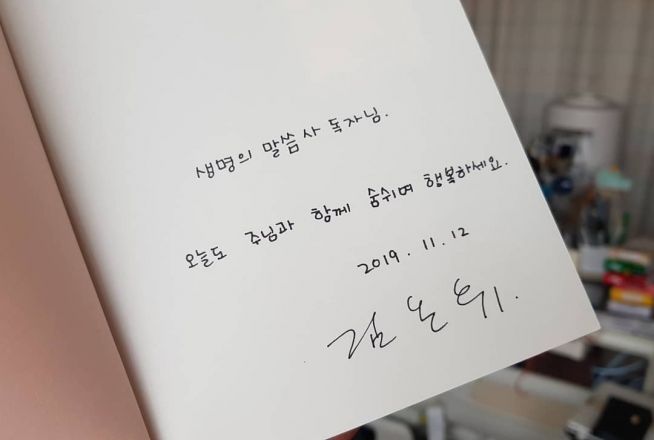 생명의 말씀사 독자님.
오늘도 주님과 함께 숨쉬며 행복하세요.
2019. 11. 12